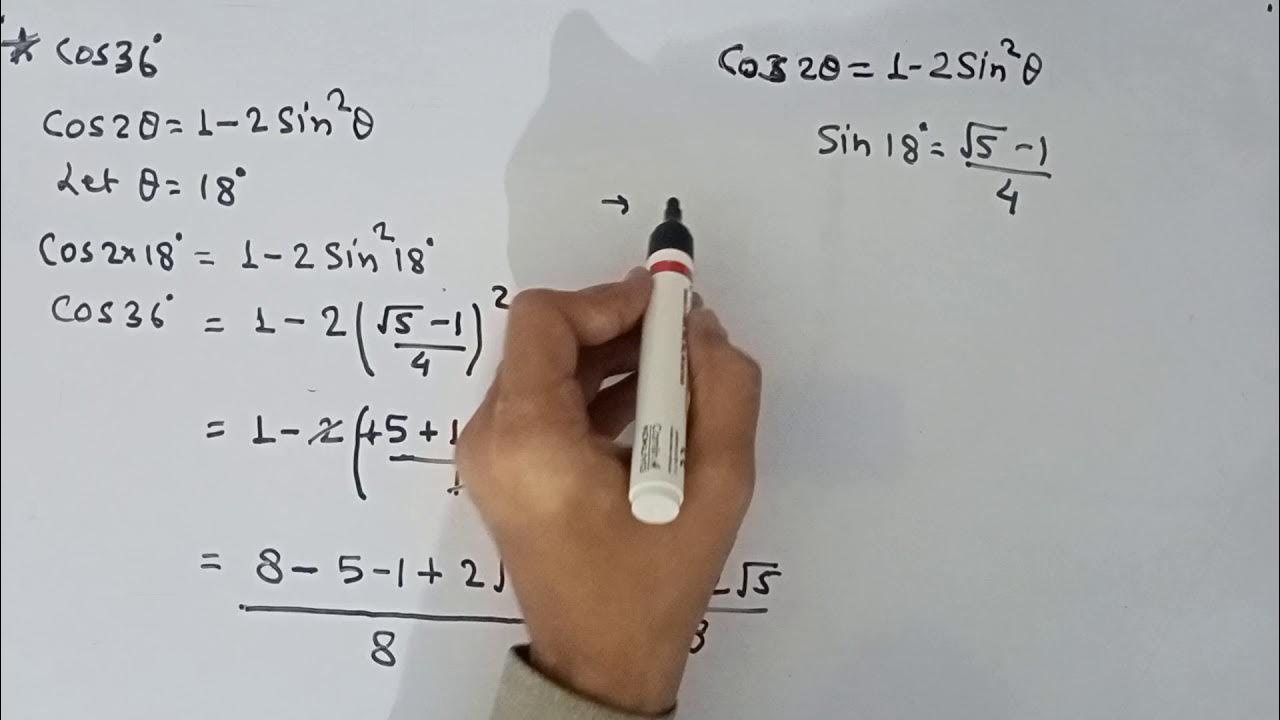 * Cos36°
Cos2θ = 1 - 2 Sin²θ
Let θ = 18°
Cos2×18° = 1 - 2 Sin²18°
Cos36° = 1 - 2 ( (√5 - 1) / 4 )²
= 1 - 2 ( +5 + 1
= 8 - 5 - 1 + 2√
8
√5
Cos 2θ = 1 - 2 Sin²θ
Sin 18° = (√5 - 1) / 4
→